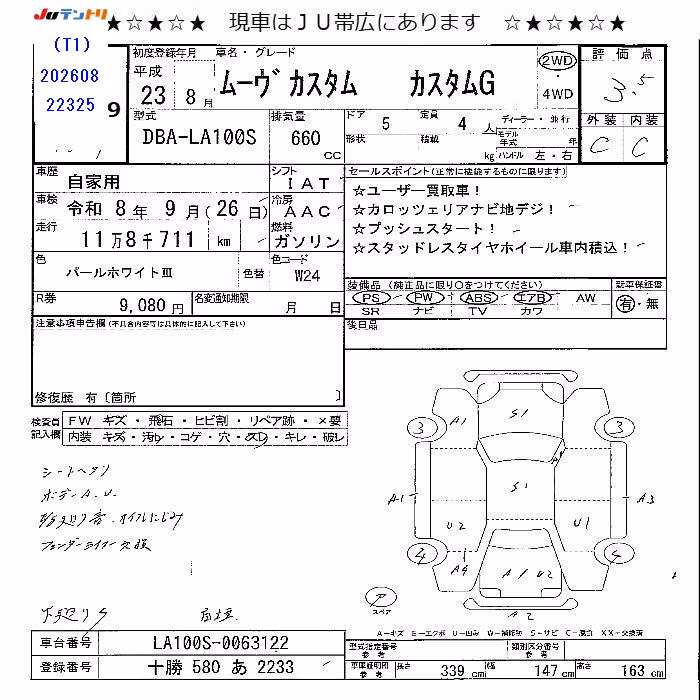 Juテントリ ★☆★☆★ 現車はＪＵ帯広にあります ☆★☆★☆★
(T1)
202608
22325
9
初度登録年月 車名・グレード
平成 23 8 月
ムーヴ カスタム カスタムG
2WD
4WD
評価点
3.5
外装 内装
C C
型式
DBA-LA100S
排気量
660 CC
ドア 5 定員 4 人 ディーラー・並行
形状 積載 kg モデル年式 年
ハンドル 左・右
車歴
自家用
車検
令和 8年 9月 (26日)
走行
11万8千711 km
シフト
IAT
冷房
AAC
燃料
ガソリン
セールスポイント(正常に機能するものに限ります)
☆ユーザー買取車！
☆カロッツェリアナビ地デジ！
☆プッシュスタート！
☆スタッドレスタイヤホイール車内積込！
色
パールホワイトⅢ
色替
色コード
W24
R券
9,080 円
名変通知期限 月 日
装備品(純正品に限り○をつけてください)
PS PW ABS エアB AW
SR ナビ TV カワ
新車保証書
有・無
後日品
注意事項申告欄(不具合内容等は具体的に記入して下さい)
修復歴 有〔箇所 〕
検査員記入欄
FW キズ・飛石・ヒビ割・リペア跡・×要
内装 キズ・汚れ・コゲ・穴・スレ・キレ・破レ
シートヘタリ
ボデーA.U.
下廻りS
A1
S1
3
3
S1
A1
A3
U2
U1
4
A4
A1 U2
A2
スペア
A-キズ E-エクボ U-凹み W-補修跡 S-サビ C-腐食 XX-交換済
車台番号
LA100S-0063122
登録番号
十勝 580 あ 2233
型式指定番号 参考
類別区分番号 参考
車庫証明用 参考
長さ 339 cm 幅 147 cm 高さ 163 cm